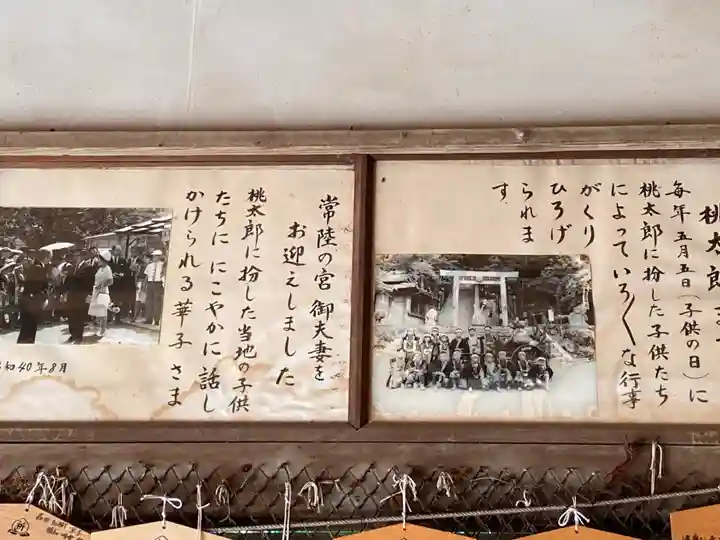 桃太郎
毎年五月五日(子供の日)に
桃太郎に扮した子供たち
によっていろ〱な行事
がくり
ひろげ
られま
す
常陸の宮御夫妻を
お迎えしました
桃太郎に扮した当地の子供
たちににこやかに話し
かけられる華子さま
和40年8月